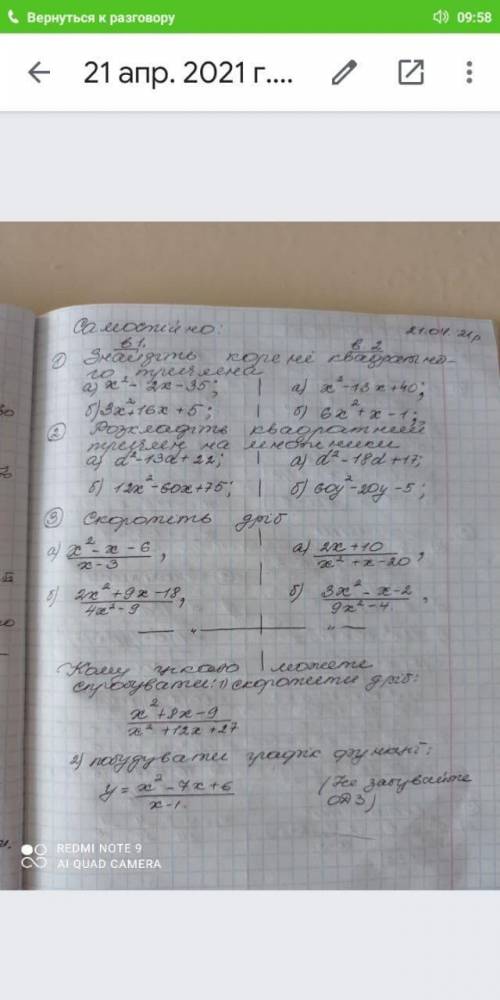 Вернуться к разговору 09:58
21 апр. 2021 г....
Самостійно: 21.04.21р
в 1. в. 2
① Знайдіть корені квадратно-
го тричлена
а) x² - 2x - 35; а) x² - 13x + 40;
б) 3x² + 16x + 5; б) 6x² + x - 1;
② Розкладіть квадратний
тричлен на множники
а) d² - 13d + 22; а) d² - 18d + 17;
б) 12x² - 60x + 75; б) 60y² - 20y - 5;
③ Скоротіть дріб
а) (x² - x - 6)/(x - 3), а) (2x + 10)/(x² + x - 20),
б) (2x² + 9x - 18)/(4x² - 9), б) (3x² - x - 2)/(9x² - 4).
Кому цікаво можете
спробувати: 1) скоротити дріб:
(x² + 8x - 9)/(x² + 12x + 27)
2) побудувати графік функції:
y = (x² - 7x + 6)/(x - 1). (Не забувайте
ОДЗ)
REDMI NOTE 9
AI QUAD CAMERA